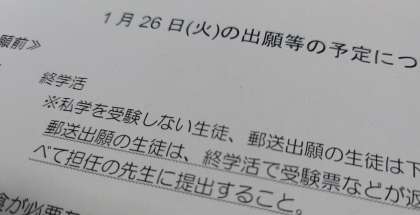 1月26日(火)の出願等の予定につ
願前≫
終学活
※私学を受験しない生徒、郵送出願の生徒は下
郵送出願の生徒は、終学活で受験票などが返
べて担任の先生に提出すること。
食が必要な